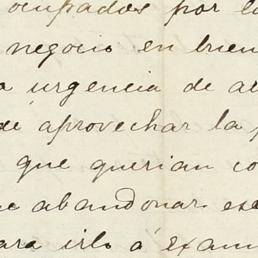 ocupados por l
negocio en buen
a urgencia de at
de aprovechar la p
que querian co
e abandonar es
ara irlo á exam